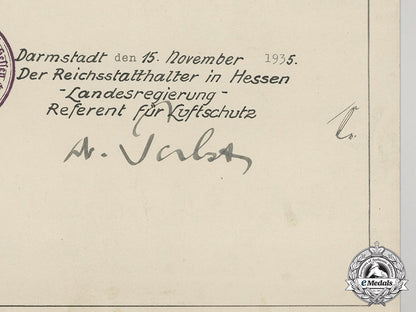 Darmstadt den 15. November 1935.
Der Reichsstatthalter in Hessen
-Landesregierung-
Referent für Luftschutz
Dr.
eMedals